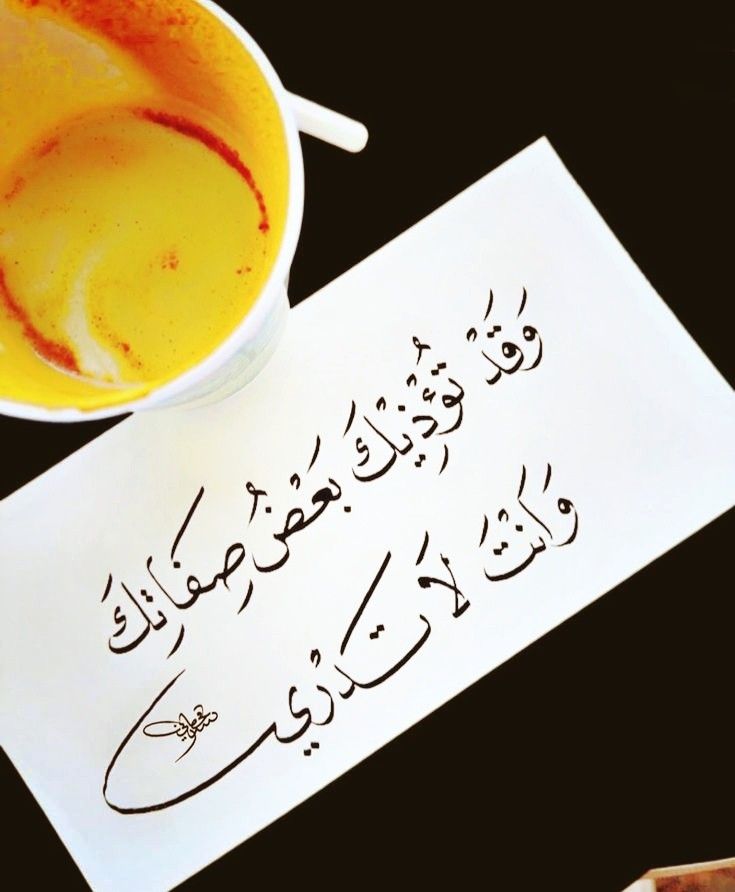 وَقَدْ تُؤْذِيْكَ بَعْضُ صِفَاتِكَ
وَأَنْتَ لَا تَدْرِي